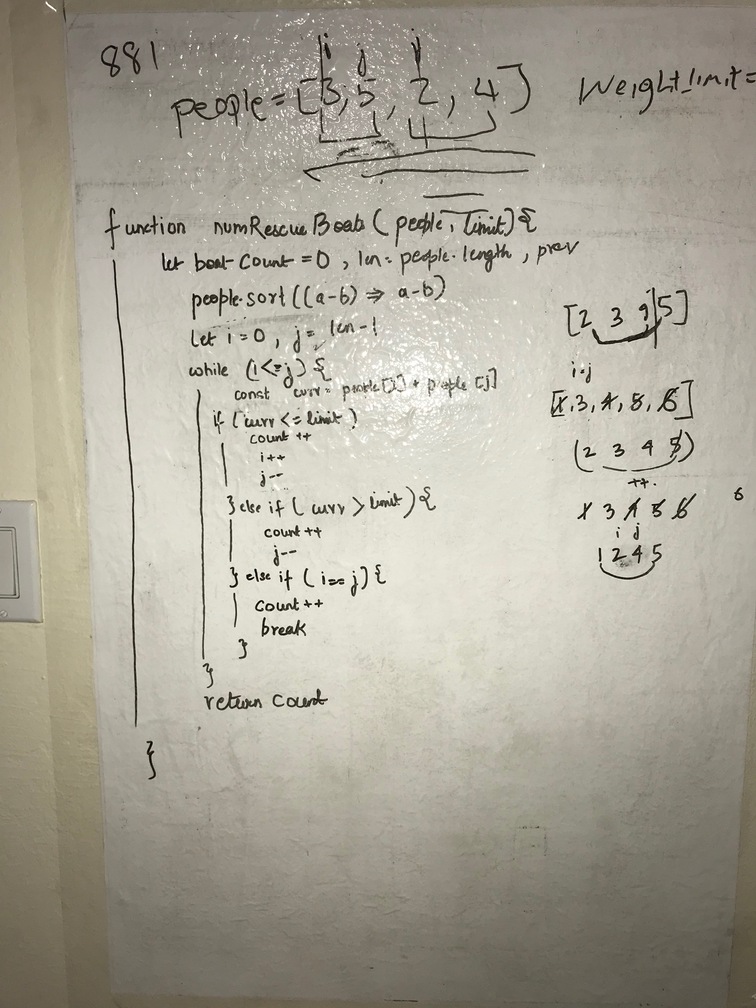 881
i j j
people = [3, 5, 2, 4] Weight_limit =
4
function numRescueBoats (people, limit) {
let boat-count = 0, len = people.length, prev
people.sort((a-b) => a-b)
let i = 0, j = len-1
while (i <= j) {
const curr = people[i] + people [j]
if (curr <= limit)
count ++
i++
j--
} else if (curr > limit) {
count ++
j--
} else if (i == j) {
count ++
break
}
}
return count
}
[2 3 4 5]
i=j
[1, 3, 4, 5, 6]
(2 3 4 5)
++.
1 3 4 5 6
6
i j
1 2 4 5